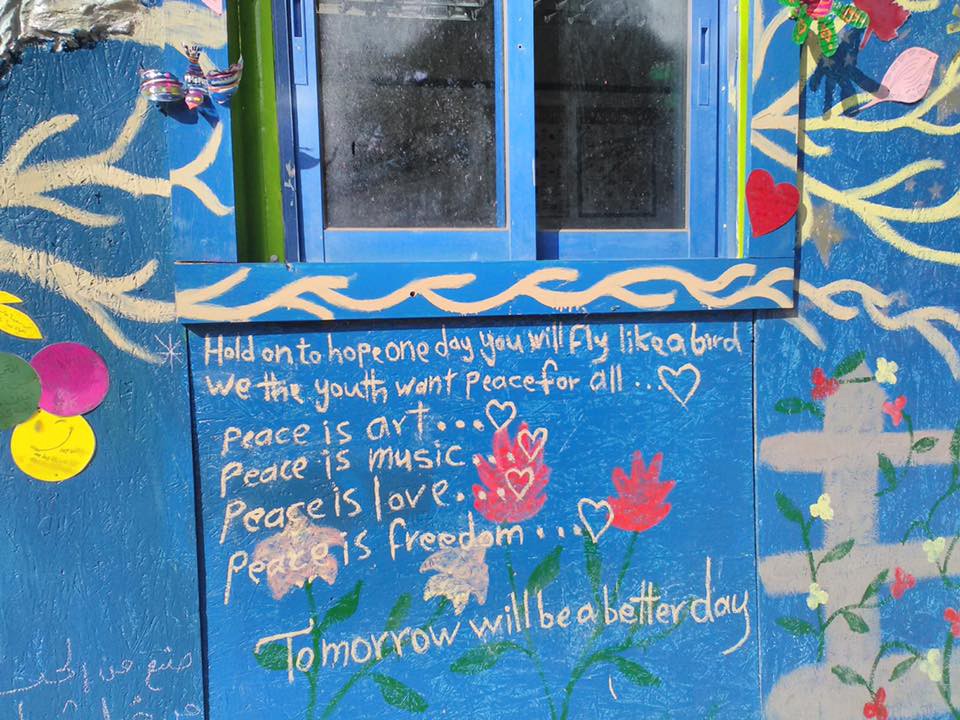 Hold on to hope one day you will fly like a bird
We the youth want peace for all ...♡
peace is art...♡
peace is music...♡
peace is love...♡
peace is freedom ...♡
Tomorrow will be a better day
صنع من